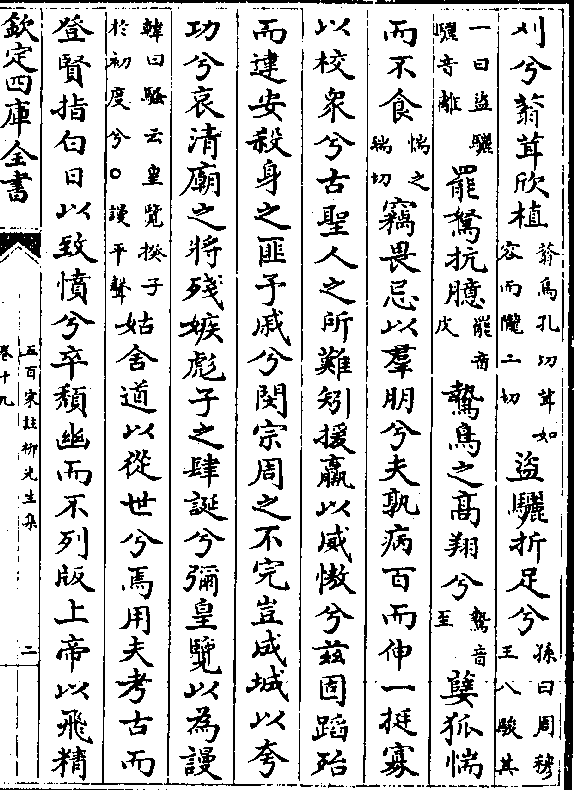 刈兮蓊茸欣植蓊烏孔切茸如容而隴二切盜驪折足兮孫曰周穆王八駿其
一曰盜驪驪音離罷駑抗臆罷音皮鷙鳥之高翔兮鷙音至孽狐惴
而不食惴之瑞切竊畏忌以羣朋兮夫孰病百而伸一挺寡
以校衆兮古聖人之所難矧援羸以威慠兮茲固蹈殆
而違安殺身之匪予戚兮閔宗周之不完豈成城以夸
功兮哀清廟之將殘嫉彪子之肆誕兮彌皇覽以為謾
韓曰騷云皇覽揆予於初度兮○謾平聲姑舍道以從世兮焉用夫考古而
登賢指白日以致憤兮卒頹幽而不列版上帝以飛精
欽定四庫全書
五百家註柳先生集
卷十九
二